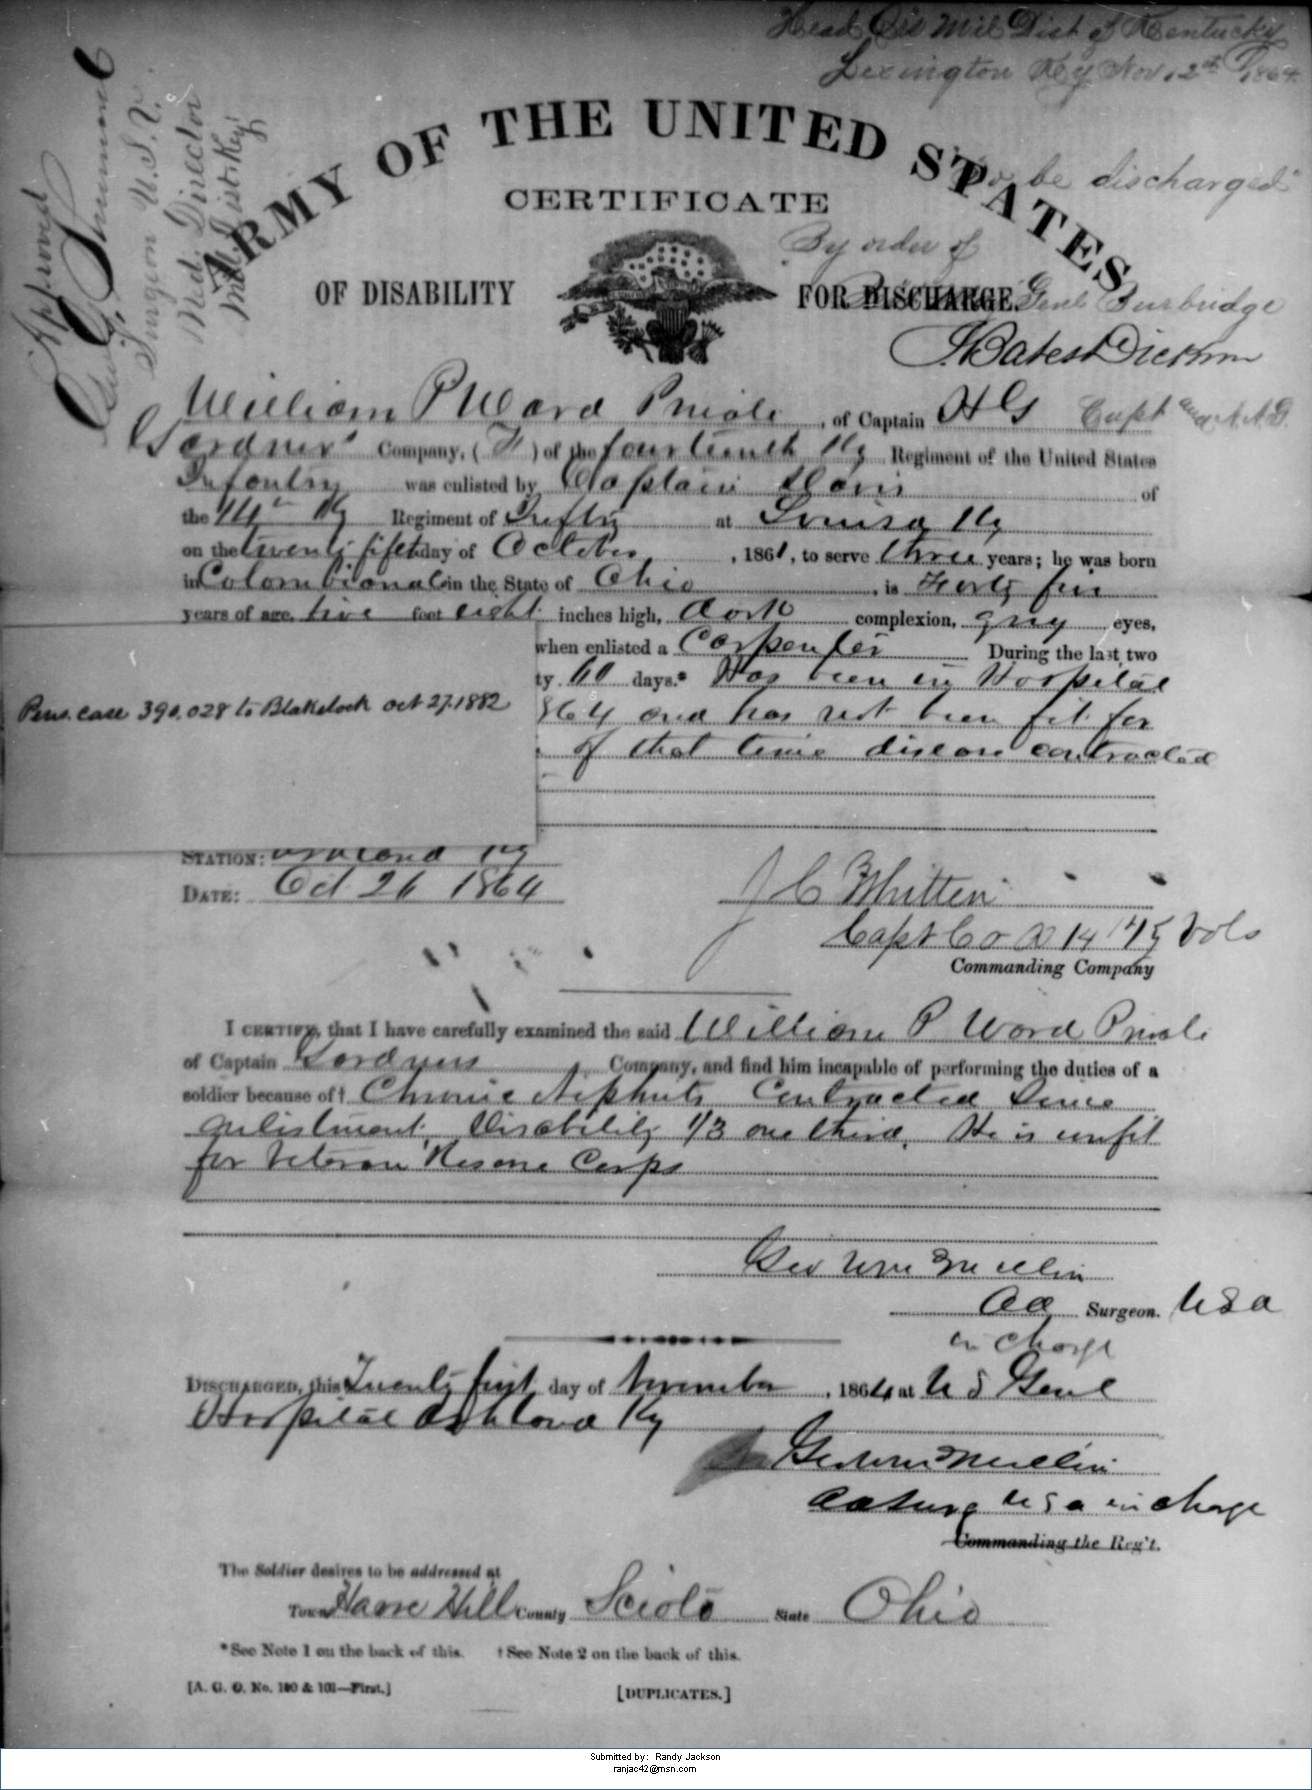 Head Qrs Mil Dist of Kentucky
Lexington Ky Nov. 12th 1864.
Approved
Surgeon U.S.V.
Med. Director
Mil. Dist. Ky.
ARMY OF THE UNITED STATES
CERTIFICATE
To be discharged
By order of
OF DISABILITY FOR DISCHARGE.
Genl Burbridge
J Bates Dickson
Capt and A.A.G.
William P Ward Private, of Captain H G
Gardners Company, ( ) of the fourteenth Ky Regiment of the United States
Infantry was enlisted by Captain Davis of
the 14th Ky Regiment of Infty at Louisa Ky
on the twenty fifth day of October, 1861, to serve three years; he was born
in Colombiana Co in the State of Ohio, is Forty five
years of age, five feet eight inches high, dark complexion, gray eyes,
when enlisted a Carpenter During the last two
ty 60 days.* Has been in Hospital
Pens. case 390,028 to Blakelock oct 27. 1882
864 and has not been fit for
of that time disease contracted
STATION: Ashland Ky
DATE: Oct 26 1864
J C Whitten
Capt Co 14 Ky Vols
Commanding Company
I CERTIFY, that I have carefully examined the said William P Ward Private
of Captain Gardners Company, and find him incapable of performing the duties of a
soldier because of† Chronic Nephrits Contracted Since
enlistment. Disability 1/3 one third. He is unfit
for Veteran Reserve Corps
Geo Wm Mullin
Surgeon. U S A
in charge
DISCHARGED, this Twenty first day of November, 1864 at U S Genl
Hospital Ashland Ky
Geo Wm Mullin
Surg U S A in charge
Commanding the Reg't.
The Soldier desires to be addressed at
Town Hill County Scioto State Ohio
*See Note 1 on the back of this. †See Note 2 on the back of this.
[A. G. O. No. 100 & 101—First.]
[DUPLICATES.]
Submitted by: Randy Jackson
ranjac42@msn.com